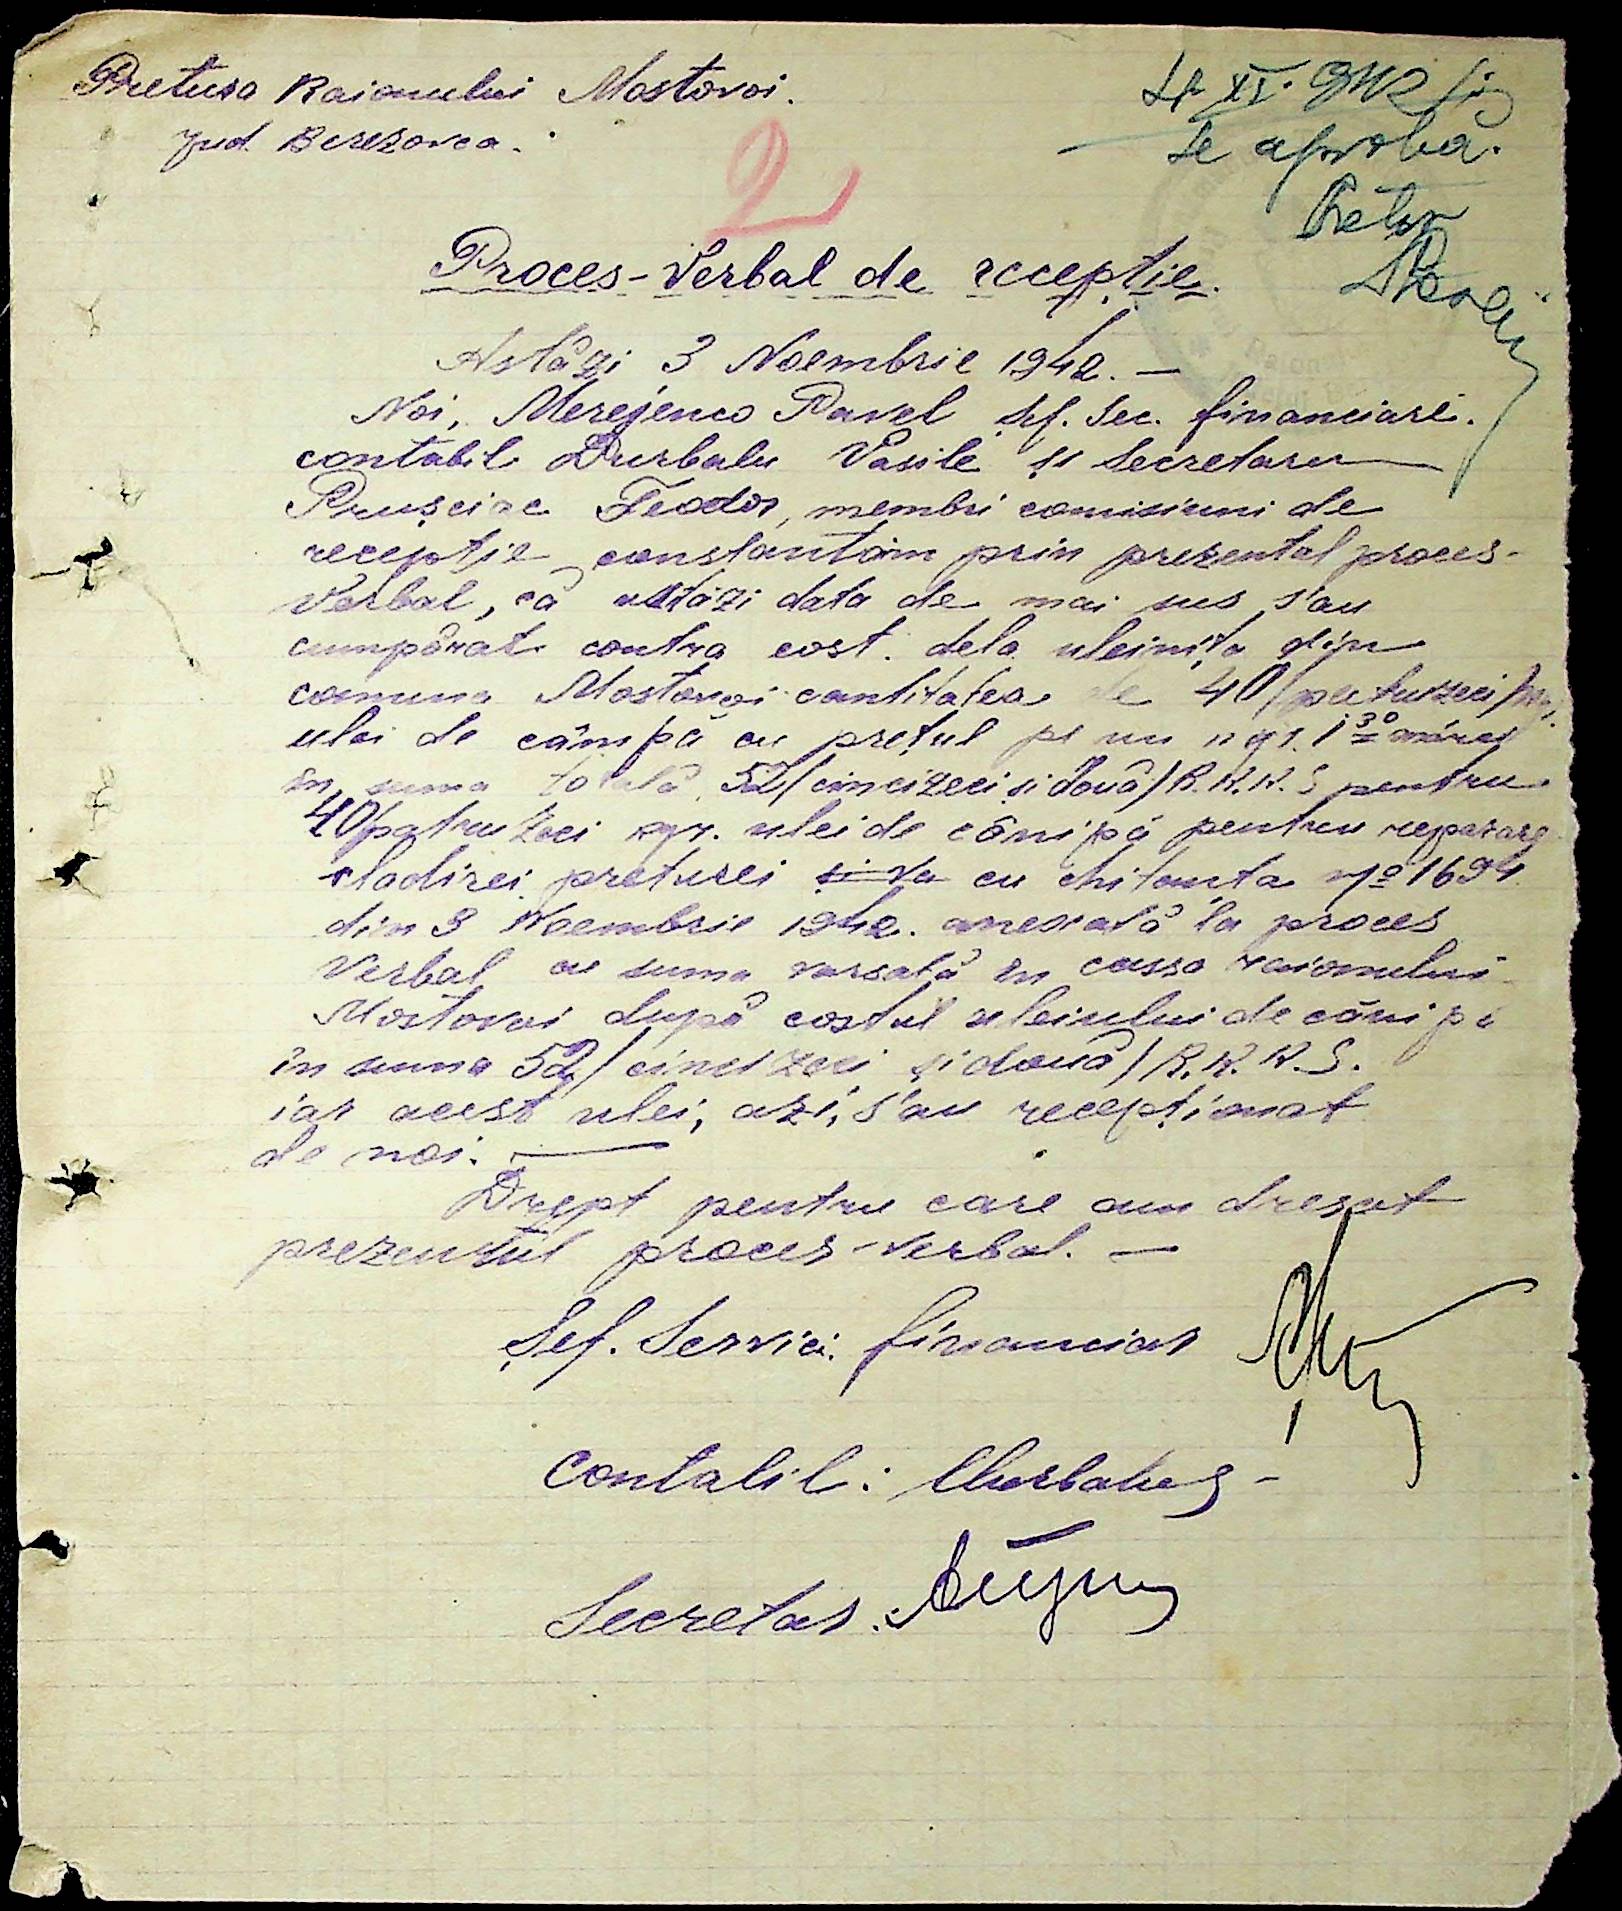 Pretura Raionului Mostovoi.
jud. Berezovca.
4 XI. 942
Se aprobă.
Pretor
2
Proces-Verbal de recepție.
Astăzi 3 Noembrie 1942. —
Noi, Merejenco Pavel șef. sec. financiare.
contabil Durbalu Vasile și Secretaru
Prușciac Feodor, membri comisiuni de
recepție constantăm prin prezentul proces-
Verbal, că astăzi data de mai sus s'au
cumpărat contra cost. dela uleinița din
comuna Mostovoi cantitatea de 40/patruzeci/kgr.
ulei de câmpă cu prețul pe un kgr. 1 30 mărci
în suma totală 52/cincizeci și două/R.K.K.S pentru
40/patruzeci kgr. ulei de cânipă pentru repararea
cladirei preturei și va cu chitanta No 1694
din 3 Noembrie 1942. anexată la proces
Verbal cu suma varsată în cassa raionului
Mostovoi după costul uleiului de cânipă
în suma 52/cincizeci și două/R.K.K.S.
iar acest ulei, azi, s'au recepționat
de noi. —
Drept pentru care am dresat
prezentul proces-verbal. —
Șef. Servici. financiar
Contabil: Durbalu
Secretar: